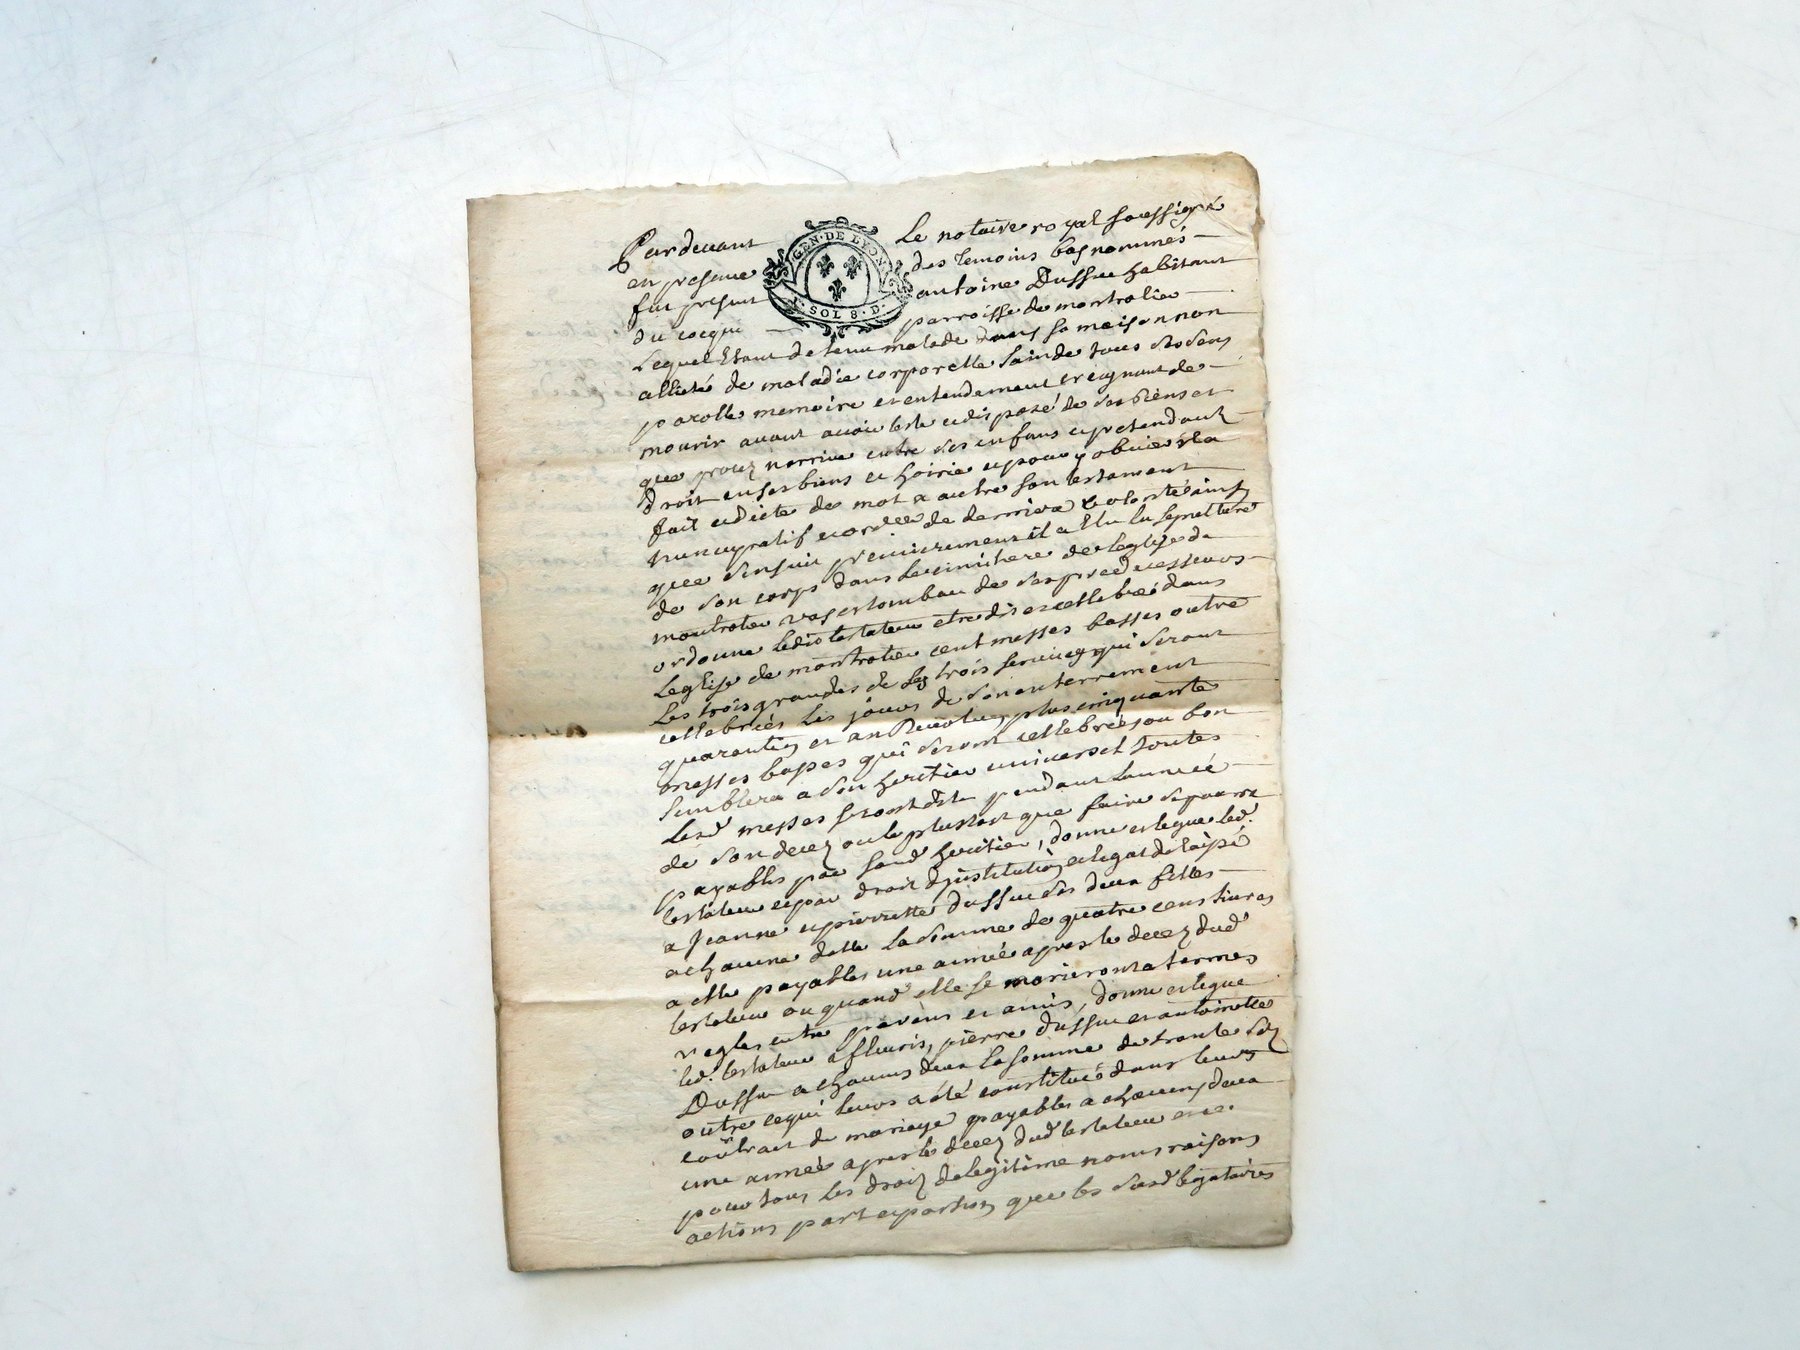 Pardevant Le notaire royal soussigné
en presence des temoins bas nommés
fut present antoine Dussuc habitant
du parroisse de montrotier
GEN·DE LYON
SOL 8·D·
Lequel Etant detenu malade dans sa maison non
allicté de maladie corporelle sain de tous ses sens
parolle memoire et entendement creignant de
mourir avant avoir testé et disposé de ses biens et
que procez narrive entre ses enfans et pretendant
droit en ses biens et hoirie et pour y obvier il a
fait et dicté de mot a autre son testament
nuncupatif et ordre de derniere volonté ainsy
que sensuit premierement il a Elu la sepulture
de son corps dans le cimitiere de leglise de
montrotier vas et tombau de ses predecesseurs
ordonne ledit testateur etre dis et cellebré dans
Leglise de montrotier cent messes basses outre
Les trois grandes de ses trois services qui seront
cellebrées les jours de son enterrement
quarantin et an Revolu plus cinquante
messes basses qui seront cellebrées ou bon
semblera a son heritier universel toutes
Lesd messes seront dite pendant lannée
de son decez ou le plustost que faire se pourra
payables par sond heritier, donne et legue led.
testateur et par droit dinstitution et legat delaissé
a Jeanne et pierrette dussuc ses deux filles
a chacune delle la somme de quatre cens livres
a elle payables une année apres le decez dud
testateur ou quand elle se marieront a termes
regles entre parens et amis, donne et legue
led. testateur a fleuris, pierre dussuc et antoinette
Dussuc a chacuns deux la somme de trante sols
outre ce qui leurs a été constitué dans leurs
contrat de mariage payables a chacuns deux
une année apres le decez dud testateur et ce
pour tous les droiz de legitime noms raisons
actions part et portion que les susd legataires